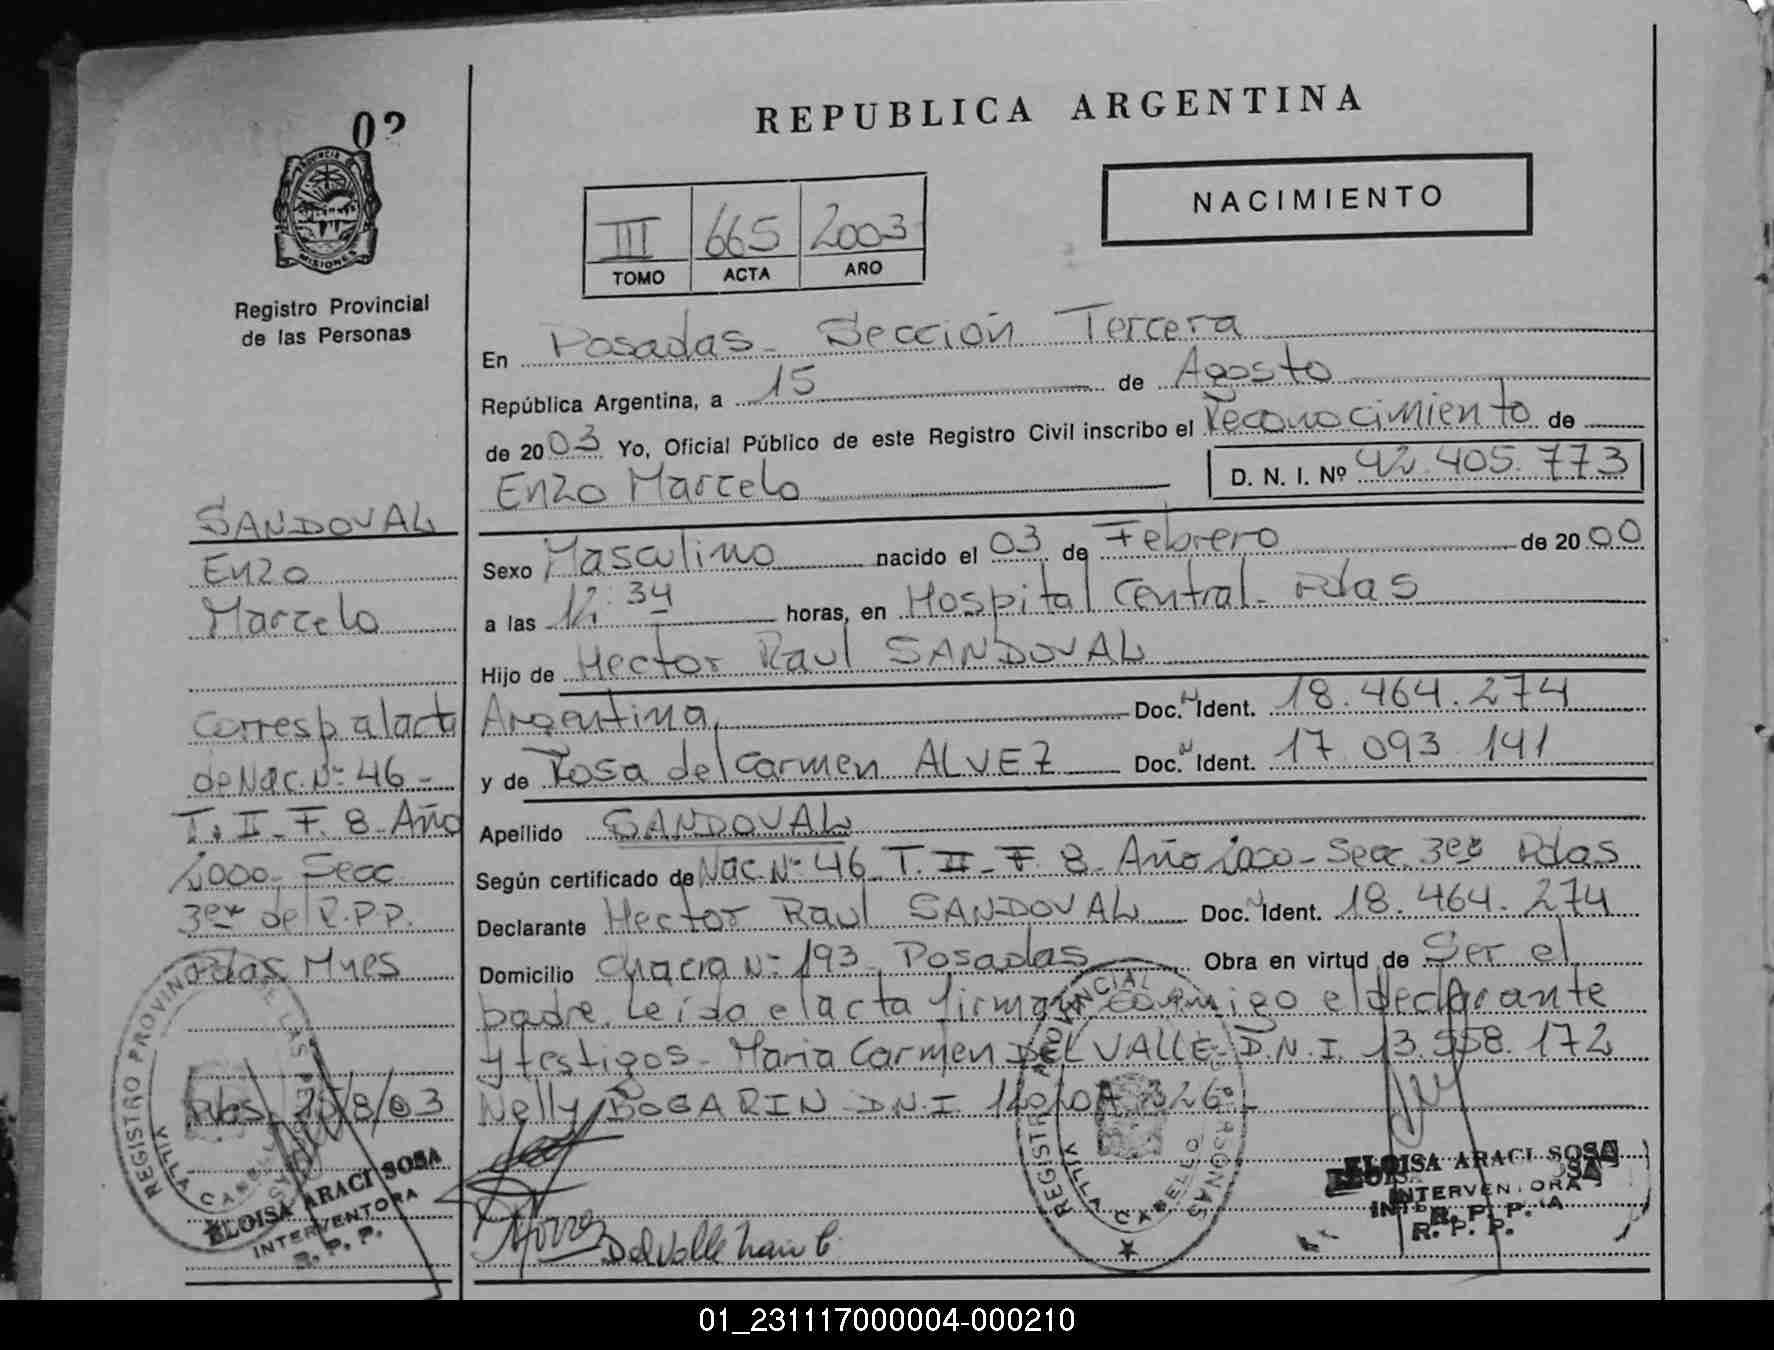 02
PROVINCIA DE
MISIONES
Registro Provincial
de las Personas
SANDOVAL
Enzo
Marcelo
Corresp al acta
de Nac. Nº 46 -
T. II - F. 8 - Año
2000. Secc
3era de R.P.P.
Pdas Mnes
Pdas, 15/8/03
REGISTRO PROVINCIAL DE LAS PERSONAS
VILLA CABELLO
ELOISA ARACI SOSA
INTERVENTORA
R. P. P.
REPUBLICA ARGENTINA
NACIMIENTO
III 665 2003
TOMO ACTA AÑO
En Posadas - Sección Tercera
República Argentina, a 15 de Agosto
de 2003 Yo, Oficial Público de este Registro Civil inscribo el reconocimiento de
Enzo Marcelo D. N. I. Nº 42.405.773
Sexo Masculino nacido el 03 de Febrero de 2000
a las 12:34 horas, en Hospital Central - Pdas
Hijo de Hector Raul SANDOVAL
Argentina, Doc. N Ident. 18.464.274
y de Rosa del Carmen ALVEZ Doc. N Ident. 17 093 141
Apellido SANDOVAL
Según certificado de Nac. Nº 46 T. II - F. 8 - Año 2000 - Secc. 3era Pdas
Declarante Hector Raul SANDOVAL Doc. N Ident. 18.464.274
Domicilio Chacra Nº 193 Posadas Obra en virtud de Ser el
padre. Leída el acta firman conmigo el declarante
y testigos - Maria Carmen DEL VALLE - D.N.I. 13.558.172
Nelly BOGARIN D.N.I.
REGISTRO PROVINCIAL PERSONAS
VILLA CABELLO
Del Valle
ELOISA ARACI SOSA
INTERVENTORA
R. P. P.
01_231117000004-000210